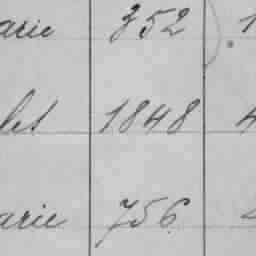 arie 352 1
let 1848 4
arie 756